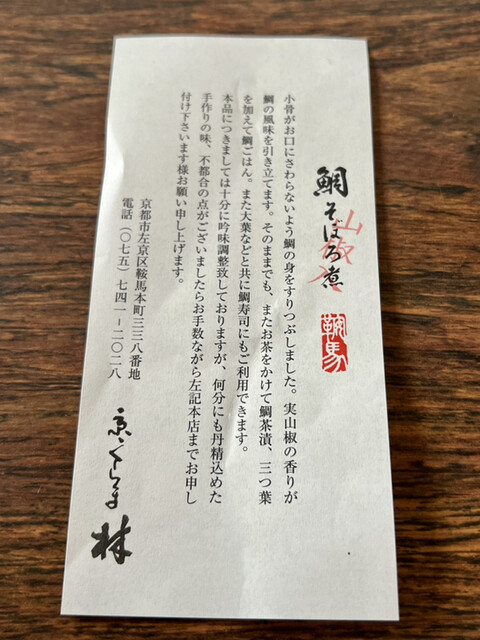 鯛そぼろ煮
山椒入
鞍馬
小骨がお口にさわらないよう鯛の身をすりつぶしました。実山椒の香りが
鯛の風味を引き立てます。そのままでも、またお茶をかけて鯛茶漬、三つ葉
を加えて鯛ごはん。また大葉などと共に鯛寿司にもご利用できます。
本品につきましては十分に吟味調整致しておりますが、何分にも丹精込めた
手作りの味、不都合の点がございましたらお手数ながら左記本店までお申し
付け下さいます様お願い申し上げます。
京都市左京区鞍馬本町三三八番地
電話(〇七五)七四一-二〇二八
京くらま
林